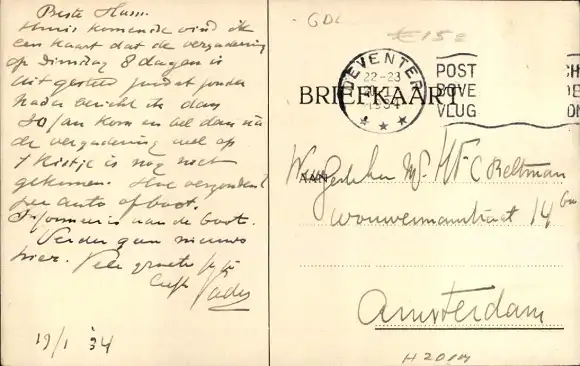 Beste Ham.
Thuis komende vind ik
een kaart dat de vergadering
op Dinsdag 8 dagen is
uitgesteld zonder
nader bericht ik dan
30/Jan kom en bel dan na
de vergadering wel op
't Kistje is nog niet
gekomen. Hoe verzonden?
per auto of boot.
Informeer is aan de boot.
Verder geen nieuws
hier. Vele groeten
Liefh Vader
19/1 '34
GDL
€15=
DEVENTER
22-23
1934
POST
BOVE
VLUG
CH
DE
BRIEFKAART
AAN
H.F.C Beltman
Wouwermanstraat 14
Amsterdam